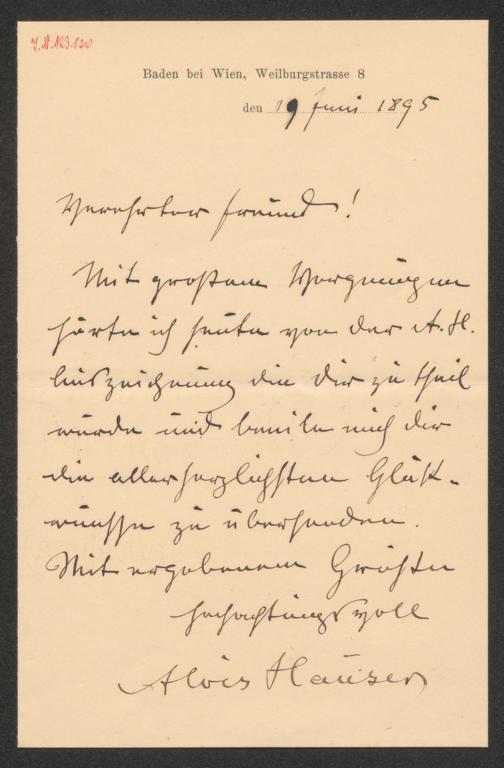 J.N. 123.120
Baden bei Wien, Weilburgstrasse 8
den 19 Juni 1895
Verehrter Freund!
Mit großem Vergnügen
hörte ich heute von der A. H.
Auszeichnung die dir zu theil
wurde und beeile mich dir
die allerherzlichsten Glück-
wünsche zu übersenden.
Mit ergebenem Grüßen
hochachtungsvoll
Alois Hauser